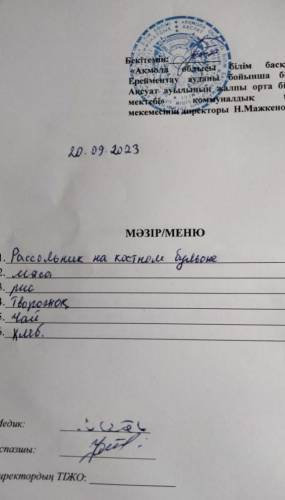 Бекітемін:
«Ақмола облысы білім басқ
Ерейментау ауданы бойынша б
Ақсуат ауылының жалпы орта бі
мектебі» коммуналдық
мекемесінің директоры Н.Мажкено
20.09.2023
МӘЗІР/МЕНЮ
1. Рассольник на костном бульоне
2. мяса
3. рис
4. Творожок
5. Чай
6. хлеб.
Медик:
спазшы:
иректордың ТІЖО: